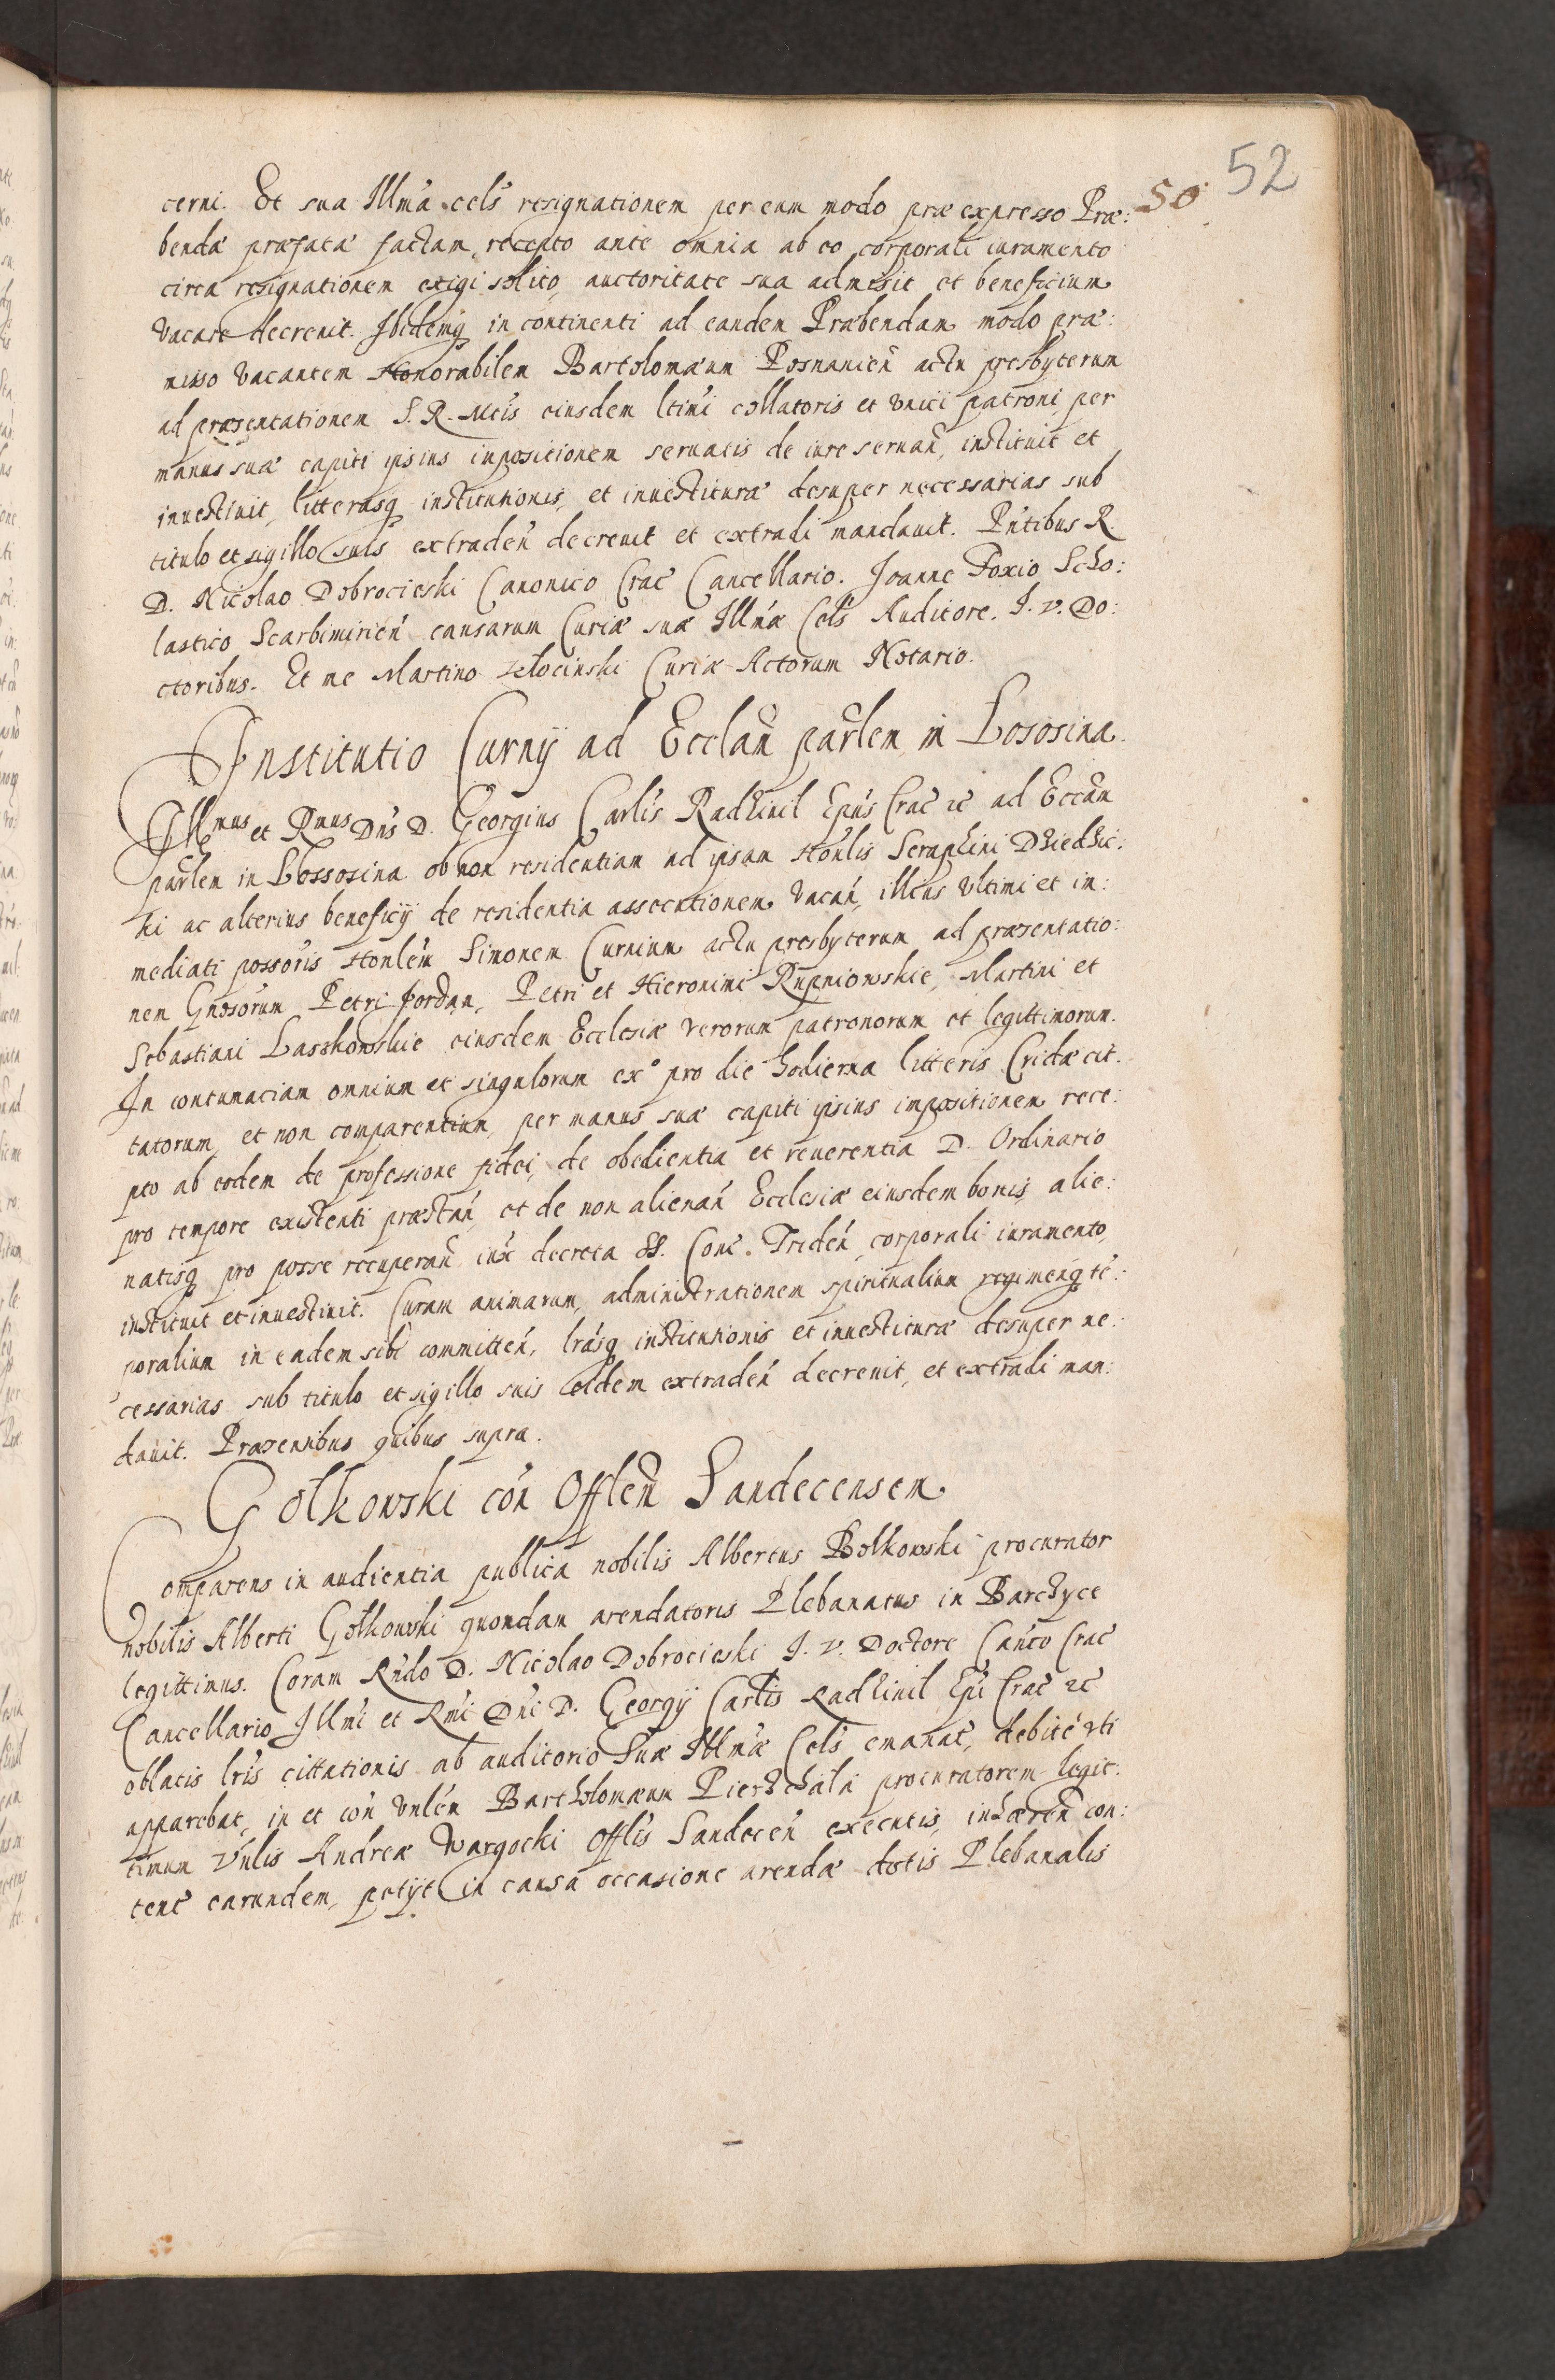 52
50
cerni. Et sua Illm̃a cels̃ resignationem per eum modo præexpresso Præ:
bendæ præfatæ factam, recepto ante omnia ab eo corporali iuramento
circa resignationem exigi solito, auctoritate sua admisit et beneficium
vacare decrevit. Ibidemq̃ in continenti ad eandem Præbendam modo præ:
misso vacantem Honorabilem Bartolomæum Posnanien̄ actu presbyterum
ad præsentationem S. R. Mt̃is eiusdem ltĩmi collatoris et vnici patroni per
manus suæ capiti ipsius inpositionem seruatis de iure seruan̄, instituit et
inuestiuit, litterasq̃ institutionis, et inuestituræ desuper necessarias sub
titulo et sigillo suis extraden̄ decreuit et extradi mandauit. Pñtibus R.
D. Nicolao Dobrocieski Canonico Crac̃ Cancellario. Joanne Foxio Scho:
lastico Scarbimirien̄ causarum Curiæ suæ Illm̃æ Cels̃ Auditore. I. V. Do:
ctoribus. Et me Martino Kłocinski Curiæ Actorum Notario.
Institutio Curnij ad Ecclam̃ parlem̃ in Lososina.
Illmus et Rmus Dñs D. Georgius Carlis̃ Radziuil Epũs Crac̃ ꝛc̃ ad Eccam̃
parlem̃ in Lossosina ob non residentiam ad ipsam Honlis̃ Seraphini Dziedzic:
ki ac alterius beneficij de residentia assecutionem vacan̄, illius vltimi et im:
mediati possoris̃ Honlem̃ Simonem Curnium actu presbyterum ad præsentatio:
nem Gñosorum Petri Jordan, Petri et Hieronimi Rupniowskie, Martini et
Sebastiani Lasskowskie eiusdem Ecclesiæ verorum patronorum et legittimorum.
In contumaciam omnium et singulorum ex° pro die hodierna litteris Cridæ cit:
tatorum, et non comparentium, per manus suæ capiti ipsius impositionem rece:
pto ab eodem de professione fidei, de obedientia et reuerentia D. Ordinario
pro tempore existenti præstan̄, et de non alienan̄ Ecclesiæ eiusdem bonis, alie:
natisq̃ pro posse recuperan̄ iux̃ decreta SS. Conc̃. Triden̄, corporali iuramento,
instituit et inuestiuit. Curam animarum, administrationem spiritualium regimenq̃ tẽ:
poralium in eadem sibi committen̄, lrãsq̃ institutionis et inuestituræ desuper ne:
cessarias sub titulo et sigillo suis eidem extraden̄ decreuit, et extradi man:
dauit. Præsentibus quibus supra.
Gołkowski con̄ Offlem̃ Sandecensem.
Comparens in audientia publica nobilis Albertus Bołkowski procurator
nobilis Alberti Gołkowski quondam arendatoris Plebanatus in Barczyce
legittimus. Coram Rñdo D. Nicolao Dobrocieski I. V. Doctore Cañco Crac̃
Cancellario Illm̃i et Rm̃i Dñi D. Georgij Carlis̃ Radziuil Epĩ Crac̃ ꝛc̃
oblatis lrĩs cittationis ab auditorio Suæ Illm̃æ Cels̃ emanat̃, debite vti
apparebat, in et con̄ Vnlem̃ Bartholomæum Pierzchala procuratorem legit:
timum Vnlis̃ Andreæ Wargocki Offlis̃ Sandecen̄ executis, inhæren̄ con:
tent̃ earundem, petijt in causa occasione arendæ dotis Plebanalis